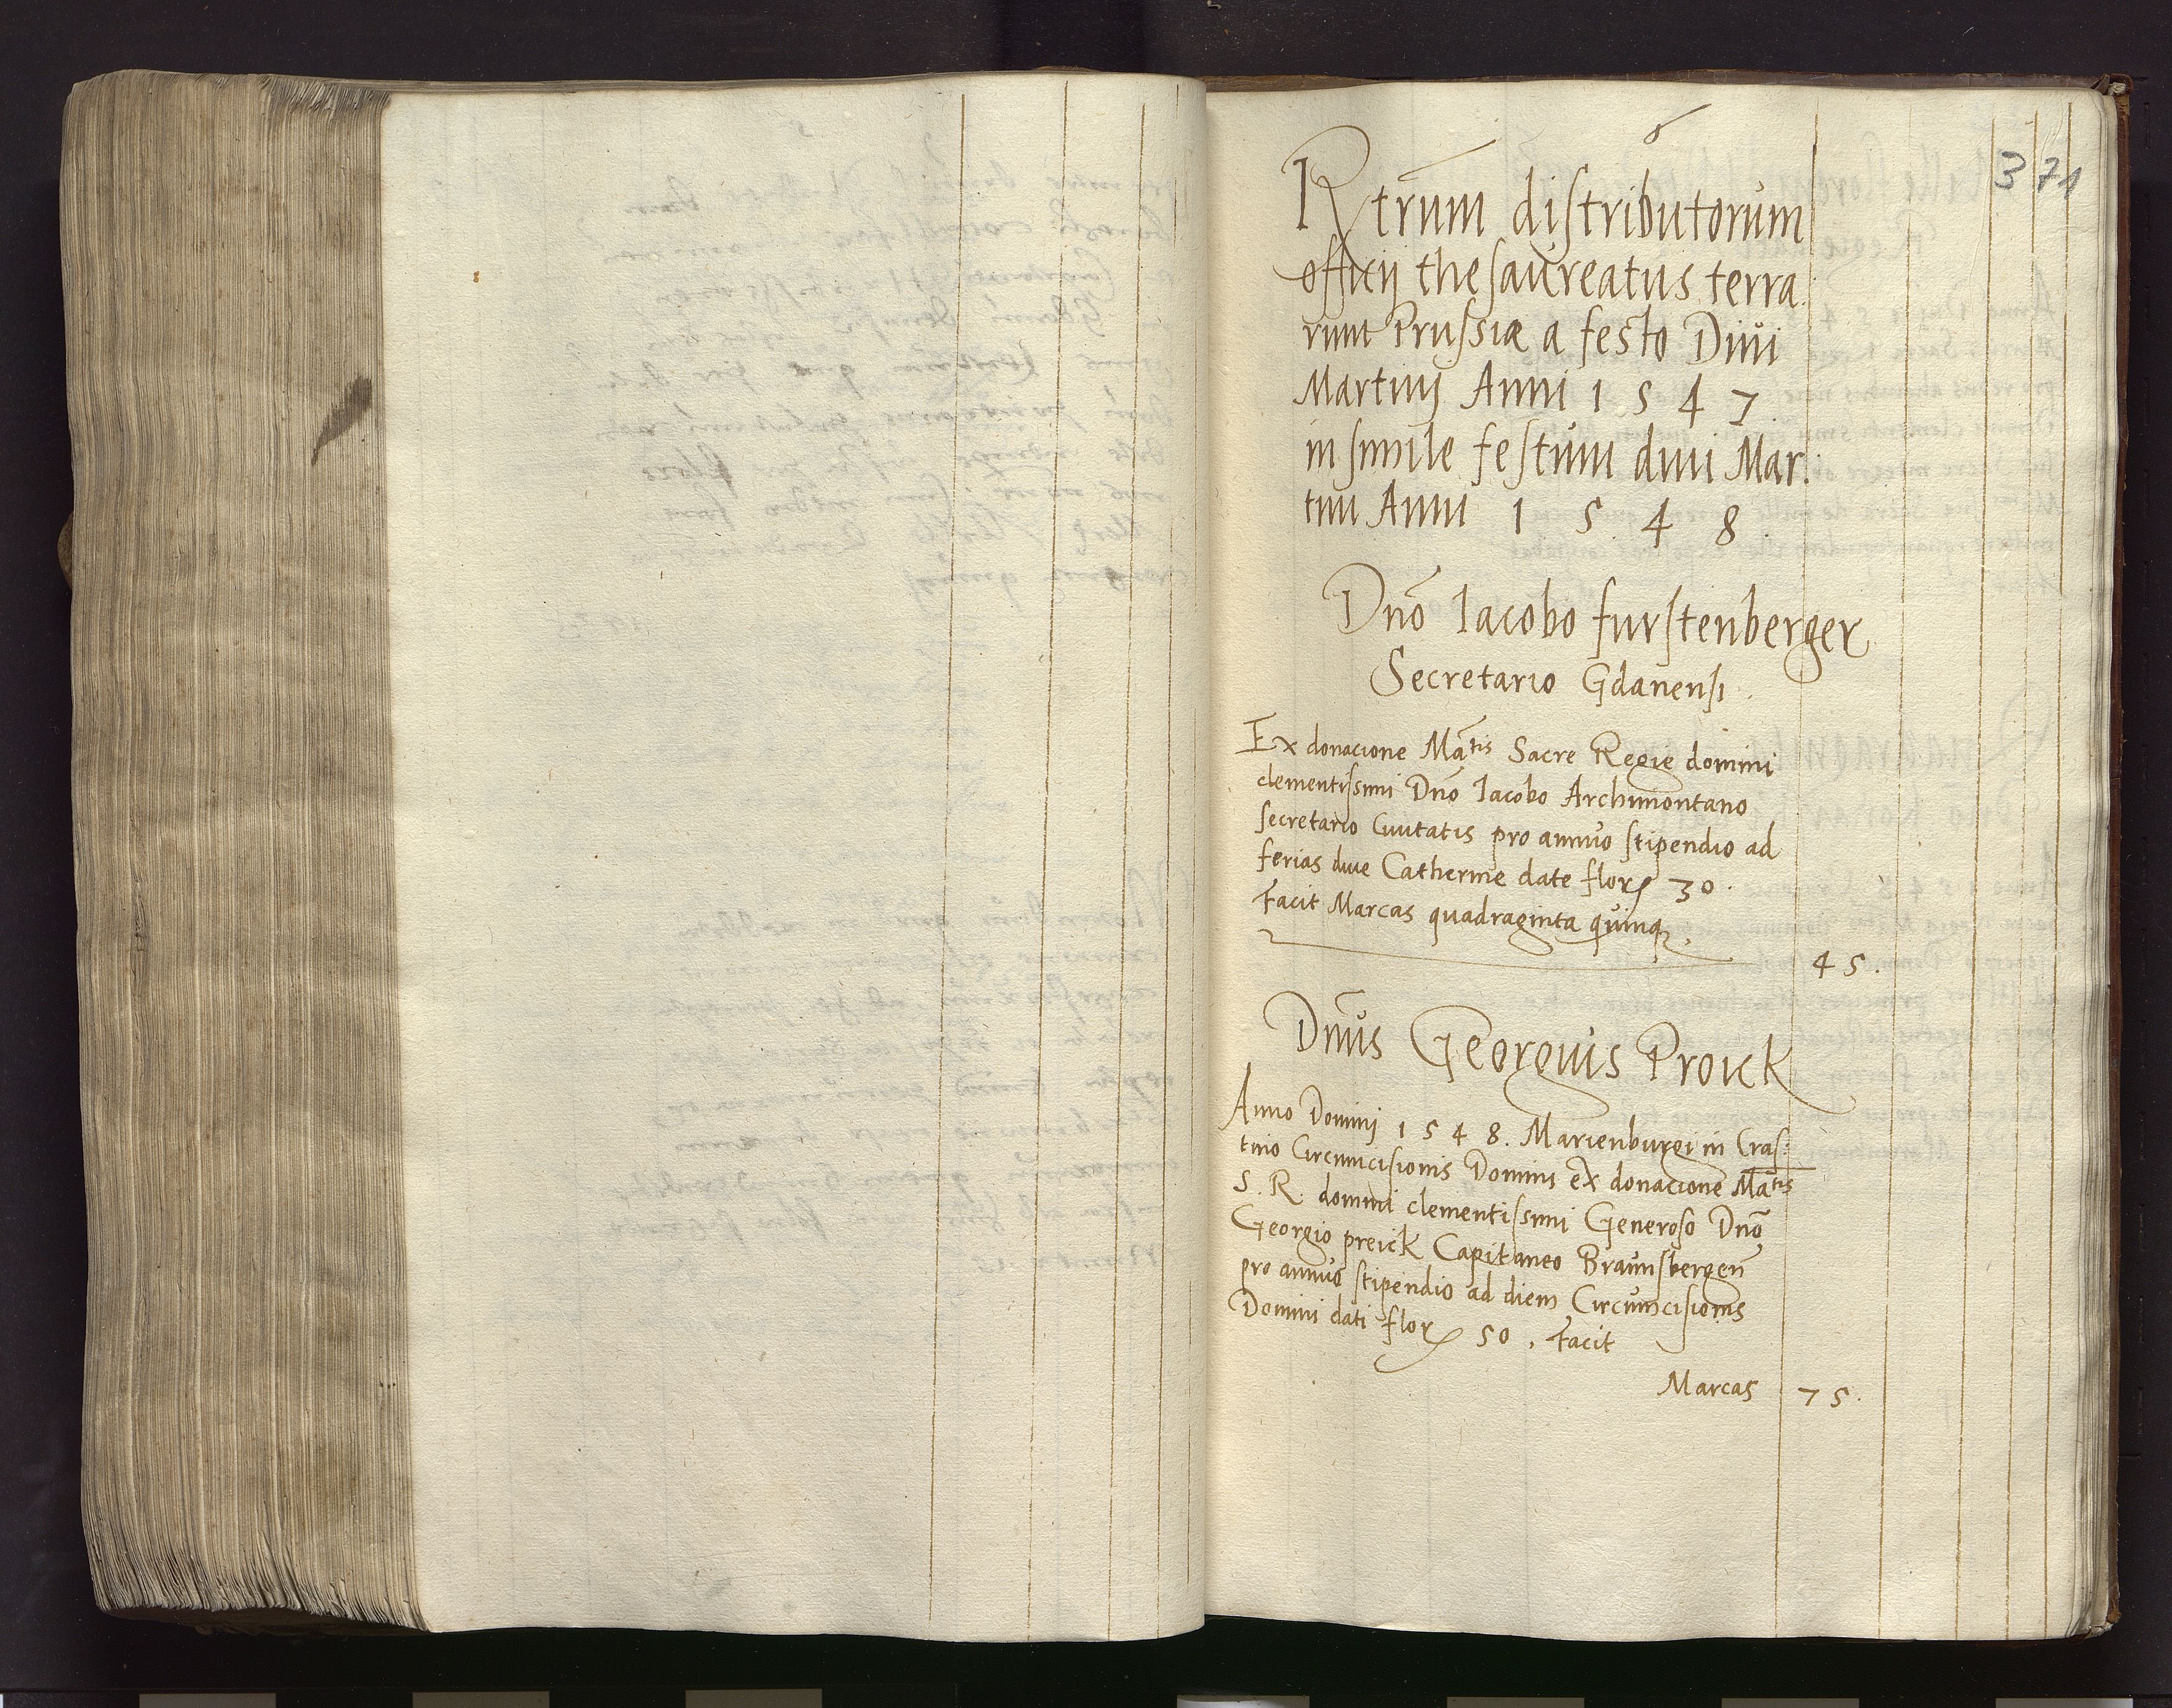 371
Rtrum distributorum
officij thesaureatus terra
rum Prussiæ a festo Diui
Martinj Anni 1547
in simile festum diui Mar:
tini Anni 1548
Dno Iacobo furstenberger
Secretario Gdanensi.
Ex donacione Matis Sacre Regie domini
clementissimi Dno Iacobo Archimontano
secretario Ciuitatis pro annuo stipendio ad
ferias diue Catherine date flor 30.
Facit Marcas quadraginta quinq.
45.
Dnus Georgius Proick
Anno Dominj 1548. Marienburgi in Cras:
tino Circumcisionis Domini ex donacione Matis
S. R. domini clementissimi Generoso Dno
Georgio preick Capitaneo Braunsbergen
pro annuo stipendio ad diem Circumcisionis
Domini dati flor 50. Facit
Marcas 75.